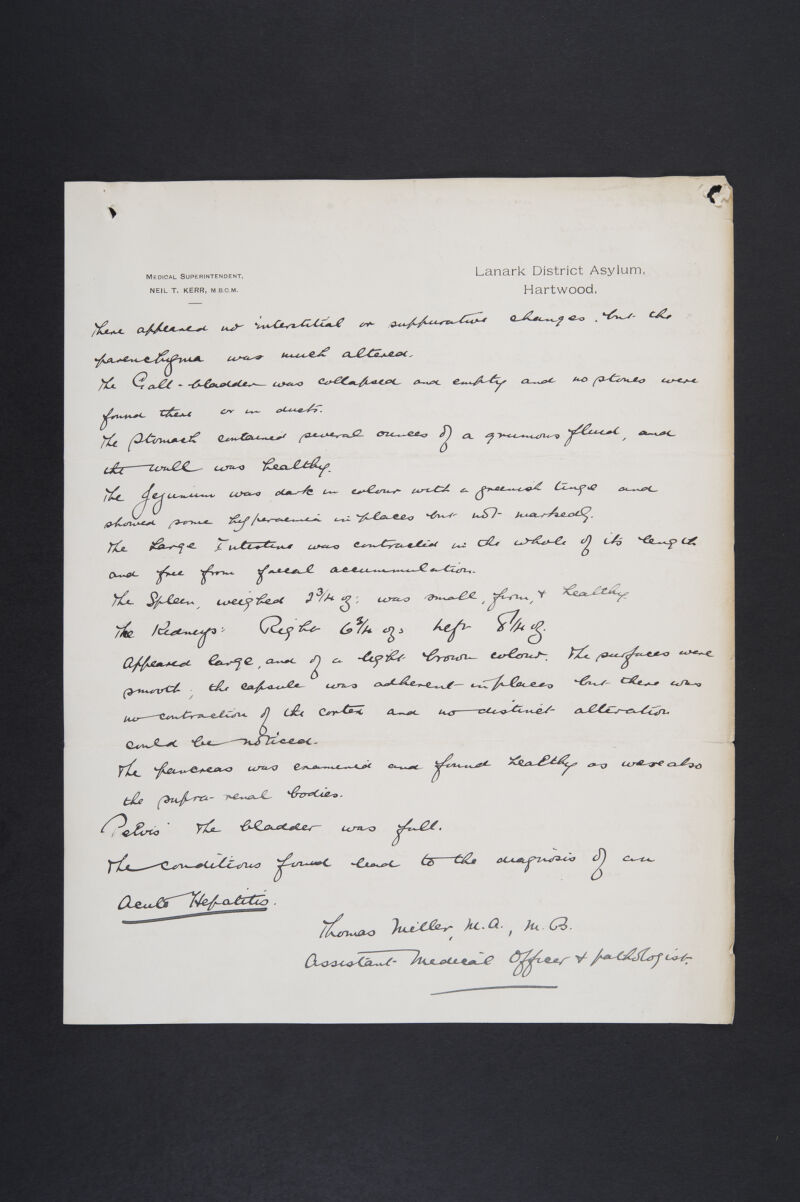 MEDICAL SUPERINTENDENT,
NEIL T. KERR, M.B.C.M.
Lanark District Asylum,
Hartwood.
There appeared no interstitial or suppurative changes, but the
parenchyma was much altered.
The Gall-bladder was collapsed and empty and no stones were
found there or in ducts.
The Stomach contained several ounces of a grumous fluid, and
the wall was healthy.
The Jejunum was dark in colour with a greenish tinge and
showed some hyperaemia in places but not markedly.
The Large Intestine was contracted in the whole of its length
and free from faecal accummulation.
The Spleen, weighed 2 3/4 oz: was small, firm, & healthy
The Kidneys: Right 6 3/4 oz, Left 8 1/4 oz.
Appeared large, and of a light brown colour. The surfaces were
smooth; the capsule was adherent in places but there was
no contraction of the cortex and no distinct alteration
could be noticed.
The pancreas was examined and found healthy as were also
the supra-renal bodies.
Pelvis The bladder was full.
The conditions found lead to the diagnosis of an
Acute Hepatitis.
Thomas Miller, M.A., M.B.
Assistant Medical Officer & pathologist.